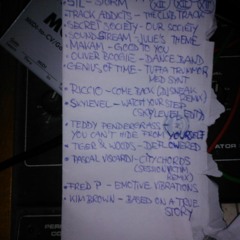 • STL - STORM
• TRACK ADDICTS - THE CLUB TRACK
• SECRET SOCIETY - OUR SOCIETY
• SOUNDSTREAM - JULIE'S THEME
• MAKAM - GOOD TO YOU
• OLIVER BOOGIE - DANCE BAND
• GENIUS OF TIME - TUFFA TRUMMOR
MED SYNT
• RICCIO - COME BACK (
REMIX)
• SKYLEVEL - WATCH YOUR STEP
(SKYLEVEL EDIT)
• TEDDY PENDERGRASS -
YOU CAN'T HIDE FROM YOURSELF
• TIGER & WOODS - DEFLOWERED
• PASCAL VISCARDI - CITYCHORDS
REMIX)
• FRED P - EMOTIVE VIBRATIONS
• KIM BROWN - BASED ON A TRUE
STORY